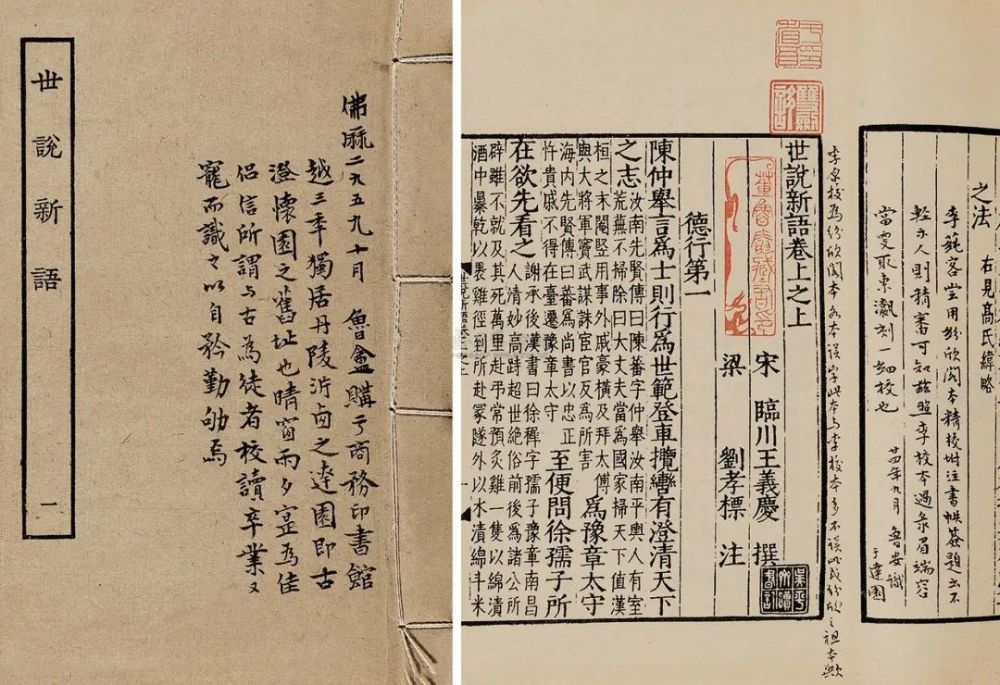 世說新語
一
佛曆二九五九十月 魯盦購于商務印書館
越三年獨居丹陵沜西之達園即古
澄懷園之舊址也晴窗雨夕寔為佳
侶信所謂与古為徒者校讀卒業又
寵而識之以自矜勤劬焉
之法
右見高氏緯略
李蓴客嘗用紛欣閣本精校附注書帙簽題云不
輕示人則精審可知茲照李校本過錄眉端容
當更取袁刻一細校也
廿四年九月 魯安識
于達園
李校為紛欣閣本各本誤字此本与李校本多不誤此或紛欣之祖本歟
世說新語卷上之上
宋 臨川王義慶 撰
梁 劉孝標 注
德行第一
陳仲舉言為士則行為世範登車攬轡有澄清天下
之志汝南先賢傳曰陳蕃字仲舉汝南平輿人有室荒蕪不掃除曰大丈夫當為國家掃天下值漢
桓之末閹豎用事外戚豪橫及拜太傅與大將軍竇武謀誅宦官反為所害為豫章太守
海內先賢傳曰蕃為尚書以忠正忤貴戚不得在臺遷豫章太守至便問徐孺子所
在欲先看之謝承後漢書曰徐稺字孺子豫章南昌人清妙高跱超世絕俗前後為諸公所
辟雖不就及其死萬里赴弔常預炙雞一隻以綿漬酒中曝乾以裹雞徑到所赴冢隧外以水漬綿斗米